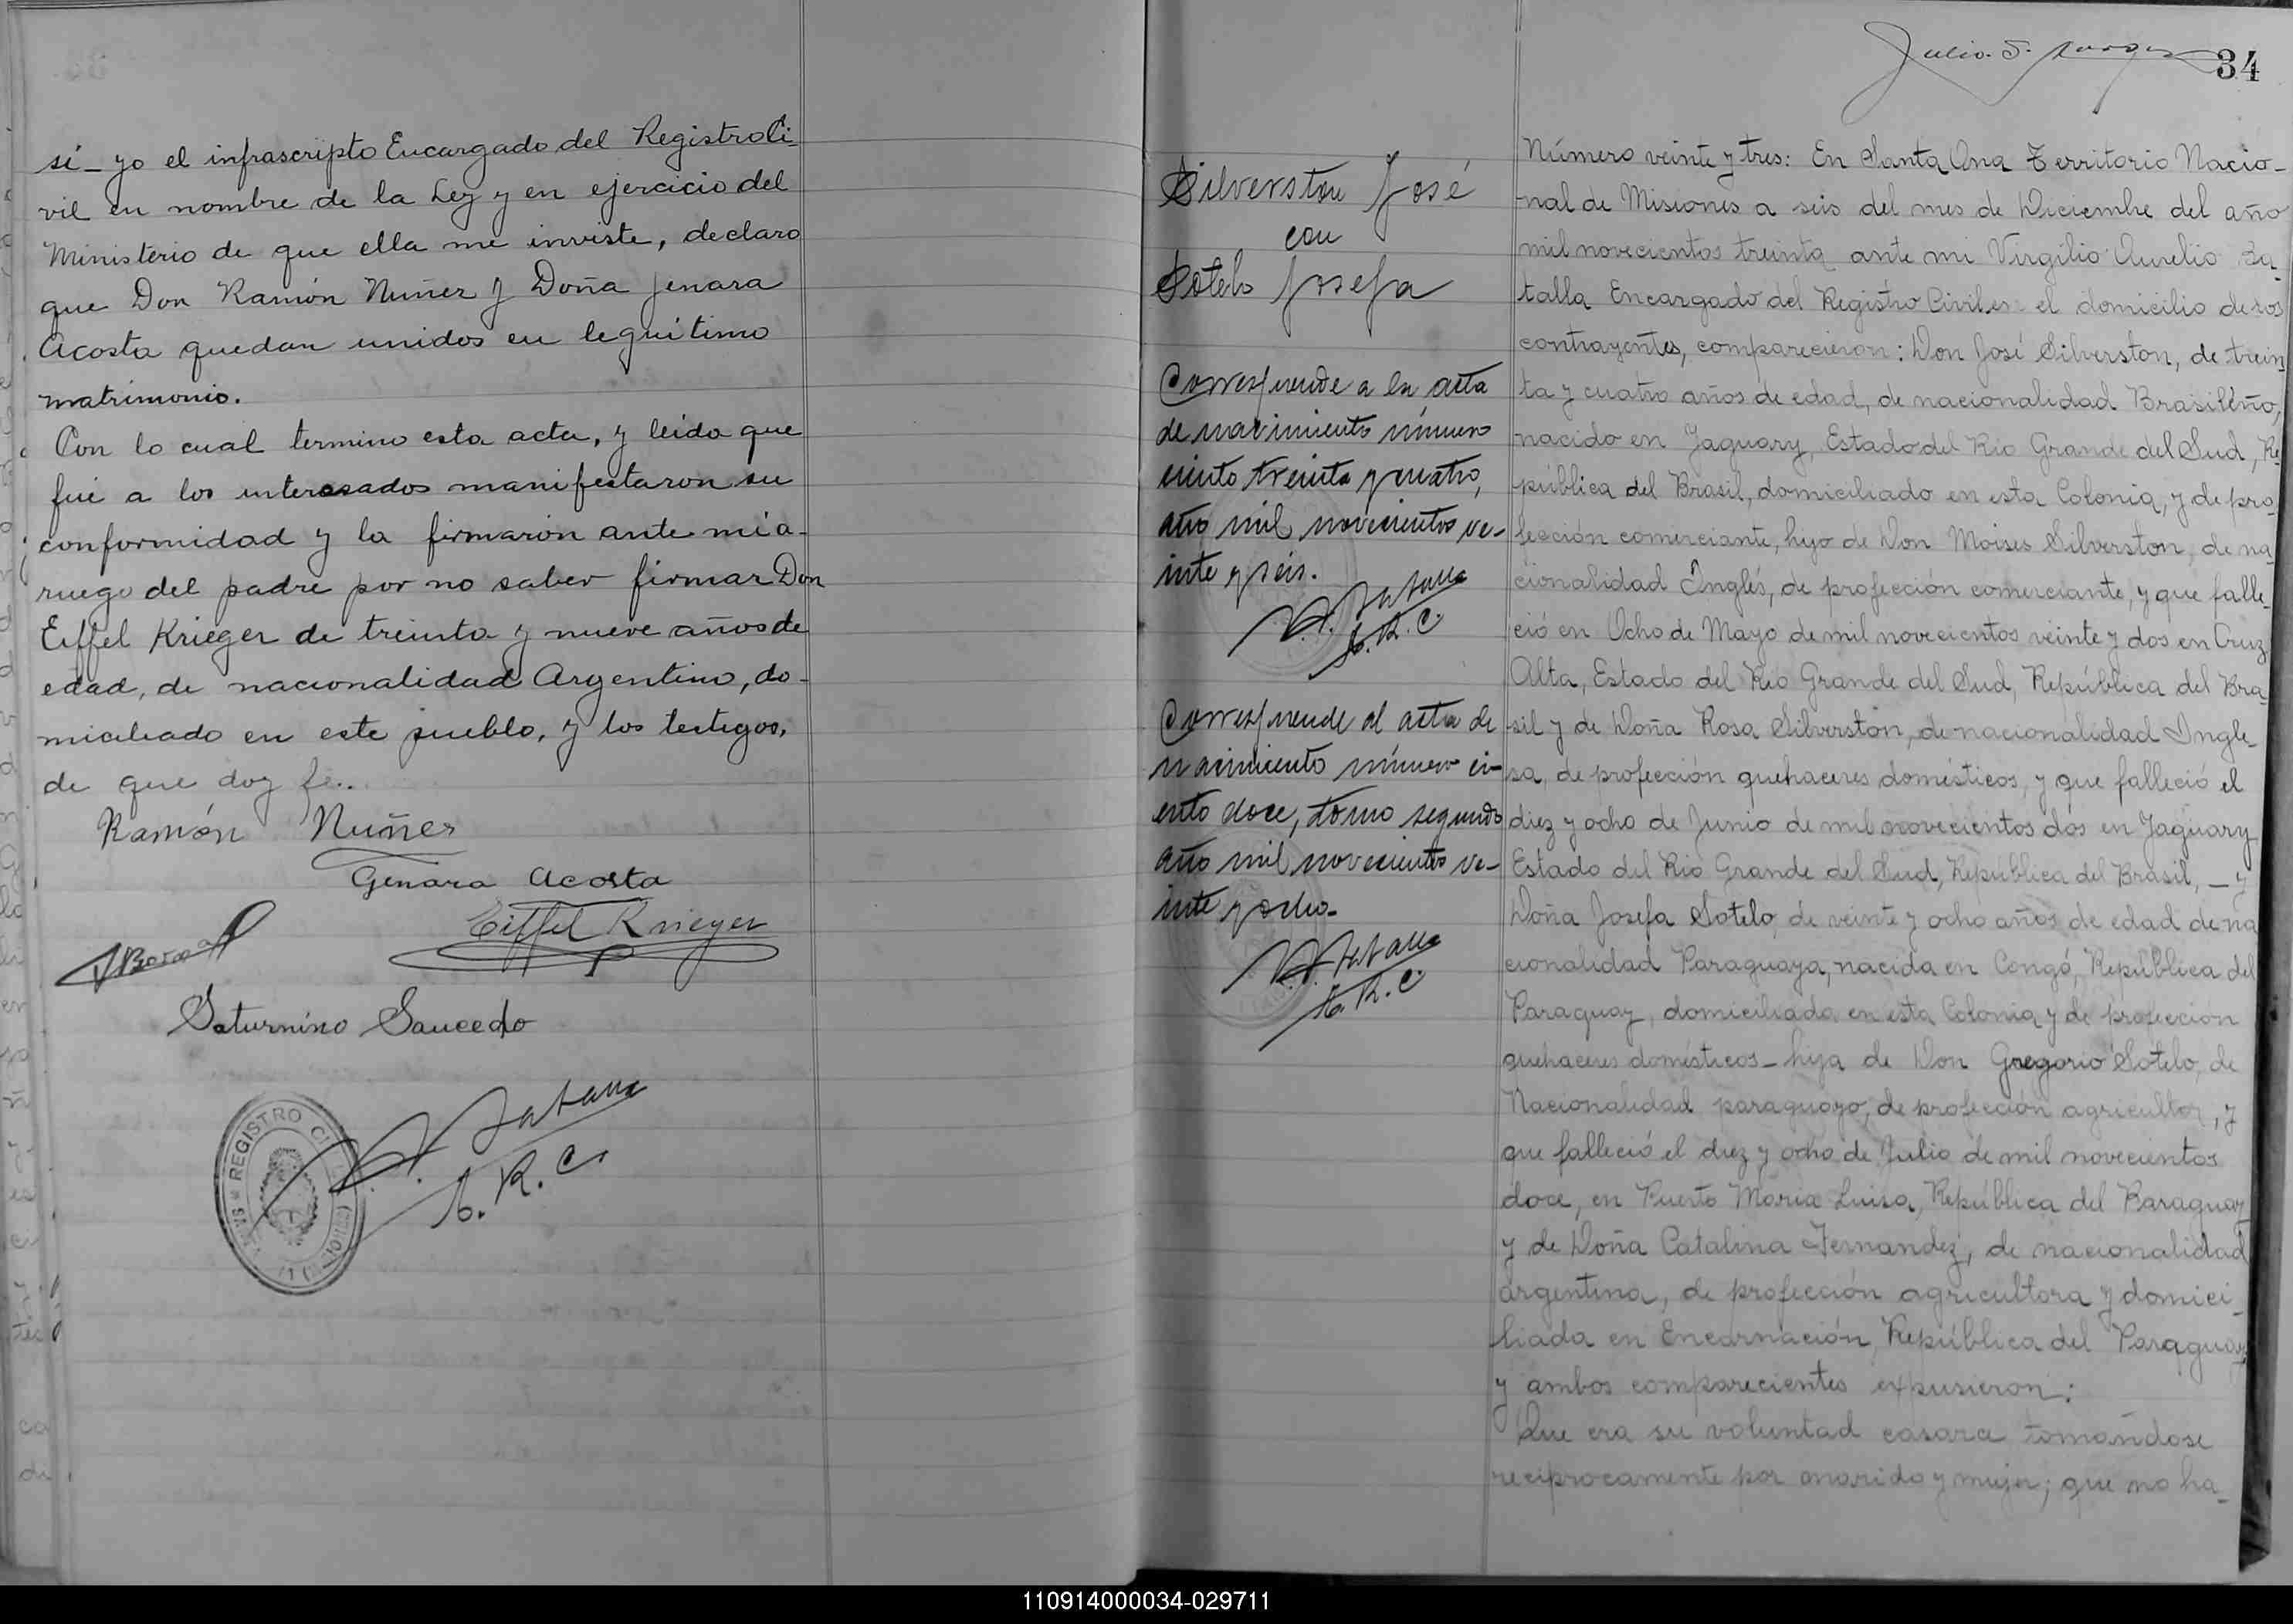 sí - yo el infrascripto Encargado del Registro Ci-
vil en nombre de la Ley y en ejercicio del
Ministerio de que ella me inviste, declaro
que Don Ramón Nuñez y Doña Jenara
Acosta quedan unidos en leguítimo
matrimonio.
Con lo cual termino esta acta, y leida que
fué a los interesados manifestaron su
conformidad y la firmarón ante mí a-
ruego del padre por no saber firmar Don
Eiffel Krieger de treinta y nueve años de
edad, de nacionalidad Argentino, do-
miciliado en este pueblo, y los testigos,
de que doy fe..
Ramón Nuñes
Genara Acosta
Eiffel Krieger
Saturnino Saucedo
REGISTRO CI
E. R. C.
Julio. S.
34
Silverston José
con
Sotelo Josefa
Corresponde a la acta
de nacimiento número
ciento treinta y cuatro,
año mil novecientos ve-
inte y seis.
E. R. C.
Corresponde al acta de
nacimiento número ci-
ento doce, tomo segundo
año mil novecientos ve-
inte y ocho.
E. R. C.
Número veinte y tres: En Santa Ana Territorio Nacio-
nal de Misiones a seis del mes de Diciembre del año
mil novecientos treinta ante mi Virgilio Aurelio Ba-
talla Encargado del Registro Civil en el domicilio de los
contrayentes, comparecieron: Don José Silverston, de trein
ta y cuatro años de edad, de nacionalidad Brasileño,
nacido en Jaguary, Estado del Rio Grande del Sud, Re-
pública del Brasil, domiciliado en esta Colonia, y de pro-
fección comerciante, hijo de Don Moises Silverston, de na-
cionalidad Inglés, de profección comerciante, y que falle-
ció en Ocho de Mayo de mil novecientos veinte y dos en Cruz
Alta, Estado del Rio Grande del Sud, República del Bra-
sil y de Doña Rosa Silverston, de nacionalidad Ingle-
sa, de profección quehaceres domésticos, y que falleció el
diez y ocho de Junio de mil novecientos dos en Jaguary
Estado del Rio Grande del Sud, República del Brasil, - y
Doña Josefa Sotelo, de veinte y ocho años de edad de na
cionalidad Paraguaya, nacida en Congó, República del
Paraguay, domiciliada en esta Colonia y de profección
quehaceres domésticos - hija de Don Gregorio Sotelo, de
Nacionalidad paraguayo, de profección agricultor, y
que falleció el diez y ocho de Julio de mil novecientos
doce, en Puerto Maria Luisa, República del Paraguay
y de Doña Catalina Fernandez, de nacionalidad
argentina, de profección agricultora y domici-
liada en Encarnación República del Paraguay
y ambos comparecientes expusieron:
Que era su voluntad casarce tomandose
reciprocamente por marido y mujer; que no ha-
110914000034-029711